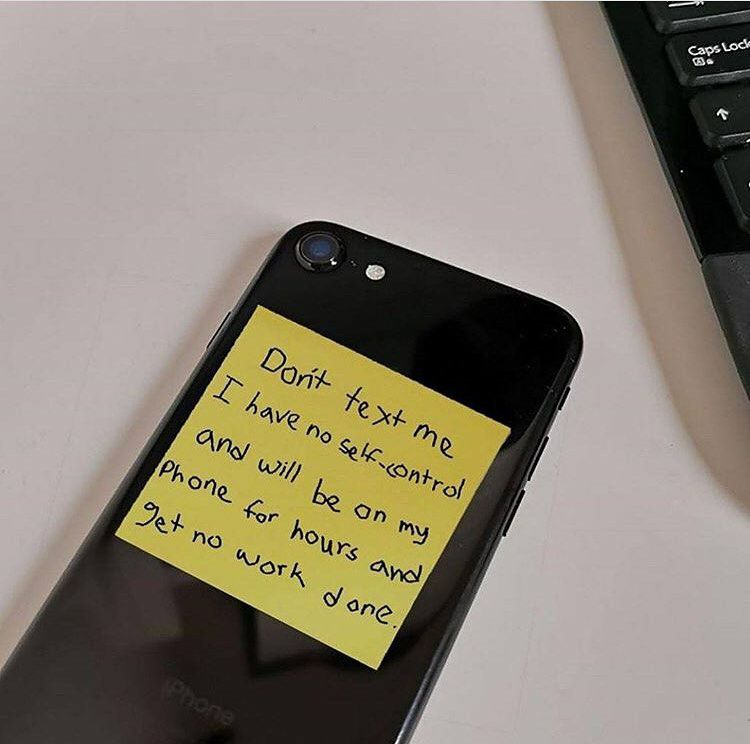 Don't text me
I have no self-control
and will be on my
phone for hours and
get no work done.
iPhone
Caps Lock